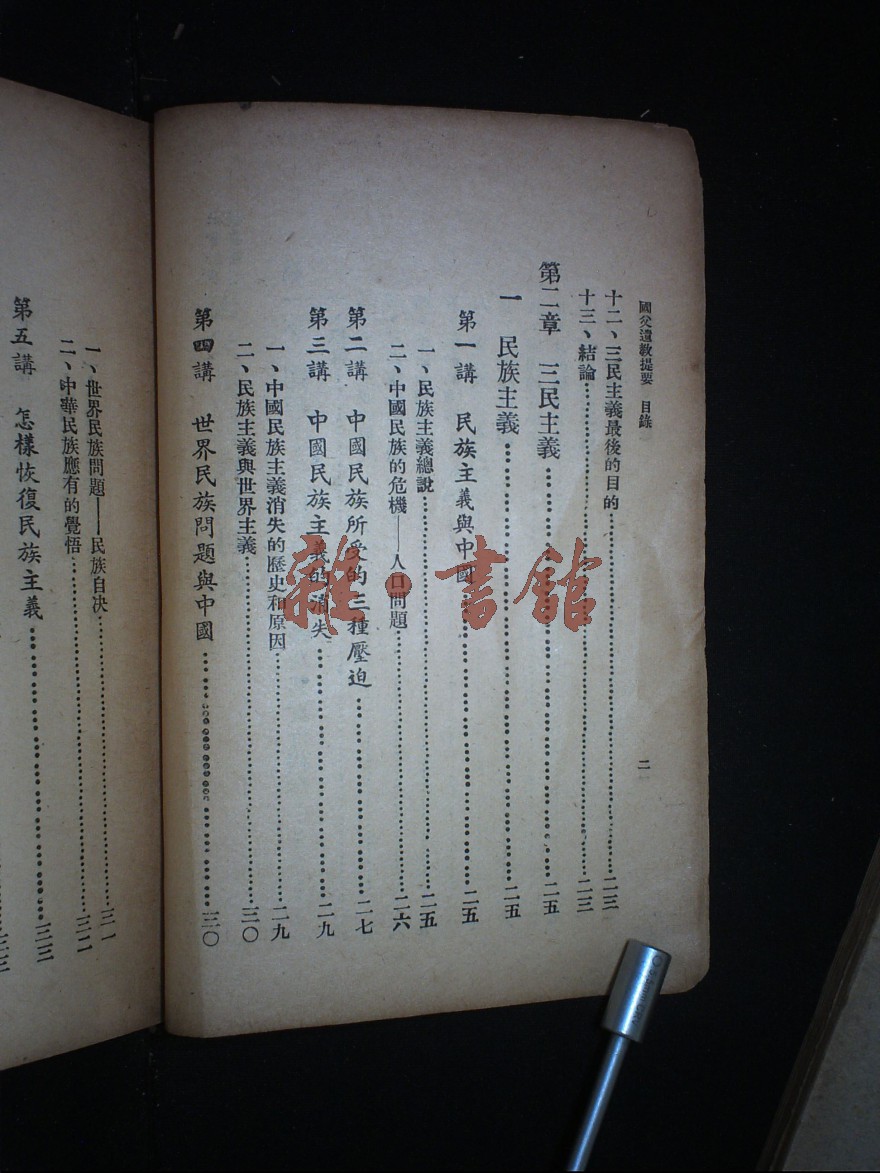 國父遺教提要　目錄　二
十二、三民主義最後的目的……二三
十三、結論……二三
第二章　三民主義……二五
一　民族主義……二五
第一講　民族主義與中國……二五
一、民族主義總說……二五
二、中國民族的危機——人口問題……二六
第二講　中國民族所受的三種壓迫……二七
第三講　中國民族主義的消失……二九
一、中國民族主義消失的歷史和原因……二九
二、民族主義與世界主義……三〇
第四講　世界民族問題與中國……三〇
一、世界民族問題——民族自決……三一
二、中華民族應有的覺悟……三二
第五講　怎樣恢復民族主義……三三
雜·書館